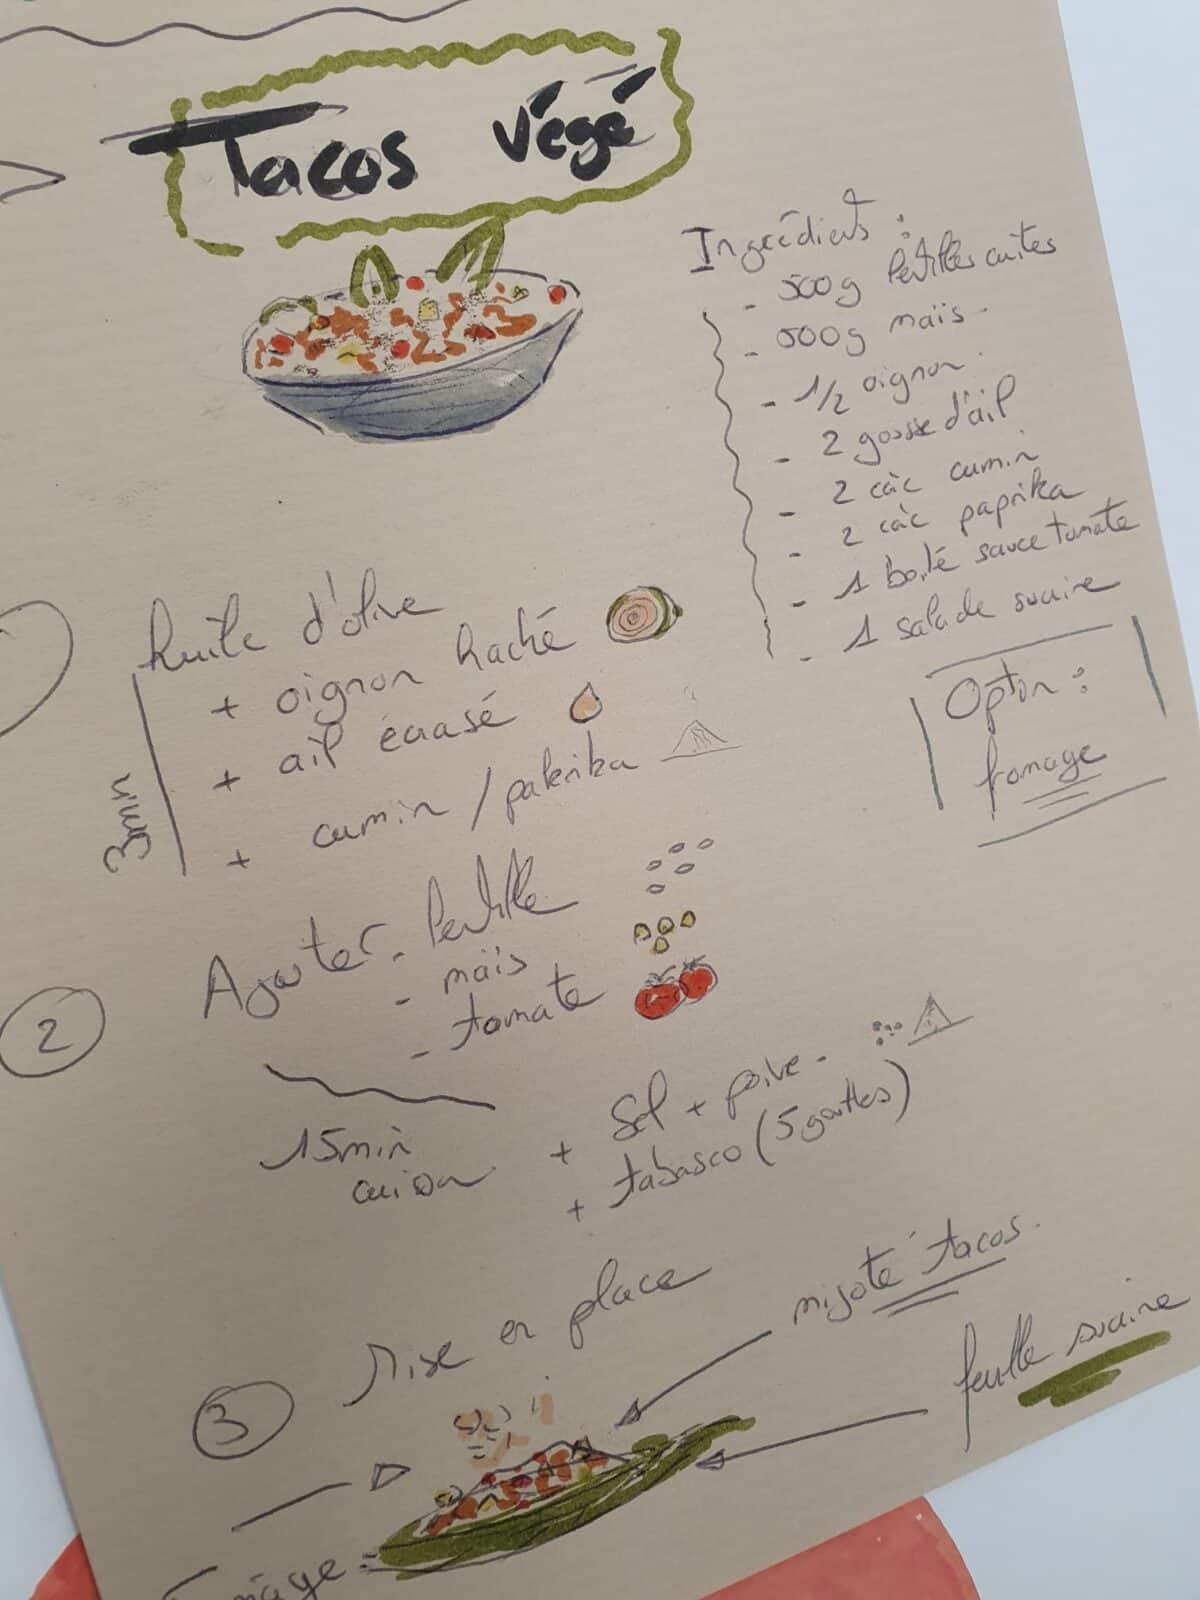 Tacos végé
Ingrédients :
- 500g lentilles cuites
- 500g maïs
- 1/2 oignon
- 2 gousse d'ail
- 2 càc cumin
- 2 càc paprika
- 1 boîte sauce tomate
- 1 salade sucrine
Option :
fromage
huile d'olive
+ oignon haché
+ ail écrasé
+ cumin / paprika
3min
2
Ajouter - lentille
- maïs
- tomate
15min
cuisson
+ Sel + poivre
+ tabasco (5 gouttes)
3
Mise en place
mijoté tacos.
feuille sucrine